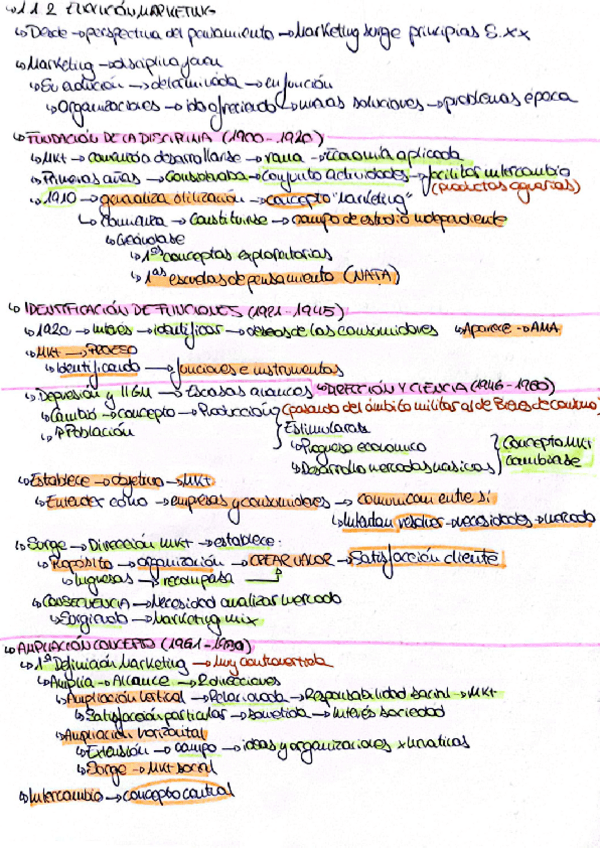 ↳ 1.1.2 EVOLUCIÓN MARKETING
↳ Desde → perspectiva del pensamiento → Marketing surge principios S.XX
↳ Marketing → disciplina joven
↳ Su evolución → determinada → en función
↳ Organizaciones → ido ofreciendo → unas soluciones → problemas época
↳ FUNDACIÓN DE LA DISCIPLINA (1900-1920)
↳ MKT → comienza a desarrollarse → rama → Economía aplicada
↳ Primeros años → Consideraba → conjunto actividades → facilitar intercambio
(productos agrarios)
↳ 1910 → generaliza utilización → concepto "marketing"
↳ Comienza → Constituirse → campo de estudio independiente
↳ Creándose
↳ 1ºs conceptos exploratorios
↳ 1as escuelas de pensamiento (NATA)
↳ IDENTIFICACIÓN DE FUNCIONES (1921-1945)
↳ 1920 → interés → identificar → deseos de los consumidores ↳ Aparece → AMA
↳ MKT → PROCESO
↳ Identificando → funciones e instrumentos
↳ Depresión y IIGM → Escasos avances
↳ DIRECCIÓN Y CIENCIA (1946-1960)
↳ Cambió → concepto → Producción (pasando del ámbito militar al de Bienes de Consumo)
↳ ↑ Población
Estimularas
↳ Progreso económico
↳ Desarrollo mercados masivos
Concepto MKT
cambiase
↳ Establece → objetivo → MKT
↳ Entender cómo → empresas y consumidores → comunican entre sí
↳ Intentan resolver → necesidades → mercado
↳ Surge → Dirección MKT → establece:
↳ Propósito → organización → CREAR VALOR → Satisfacción cliente
↳ Ingresos → recompensa
↳ CONSECUENCIA → Necesidad analizar mercado
↳ Surgiendo → Marketing mix
↳ AMPLIACIÓN CONCEPTO (1961-1989)
↳ 1ª Definición Marketing → Muy controvertida
↳ Amplía → Alcance → 2 direcciones
↳ Ampliación vertical → Relacionada → Responsabilidad social → MKT
↳ Satisfacción particular → sometida → interés sociedad
↳ Ampliación horizontal
↳ Extensión → campo → ideas y organizaciones x lunaticas
↳ Surge → MKT social
↳ Intercambio → concepto central